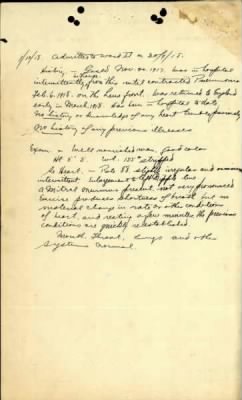 1/10/18. Admitted to ward II on 30/9/18.
History - Enld Nov. 20. 1917. was in hospital
intermittently from this until contracted Pneumonia
Feb. 6. 1918. on the Lens front. was returned to England
early in March 1918. Has been in hospitals to date
No history or knowledge of any heart trouble previously
No history of any previous illnesses
Exam - Well nourished man, good color
Ht 5' 5" Wt. 135 stripped
Heart. - Rate 88 slightly irregular and
intermittent
a Mitral murmur present, not very pronounced
Exercise produces shortness of breath but no
material change in rate or other conditions
of heart, and resting a few minutes the previous
conditions are quickly re-established.
Mouth, Throat, Lungs and other
Systems normal